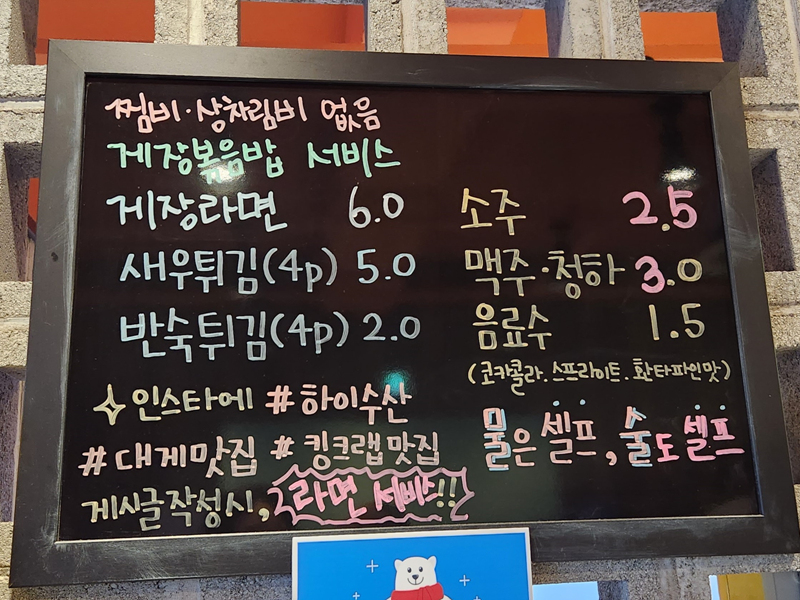 찜비·상차림비 없음
게장볶음밥 서비스
게장라면 6.0
새우튀김(4p) 5.0
반숙튀김(4p) 2.0
소주 2.5
맥주·청하 3.0
음료수 1.5
(코카콜라.스프라이트.환타파인맛)
✧인스타에 #하이수산
#대게맛집 #킹크랩맛집
게시글작성시, 라면 서비스!!
물은 셀프, 술도 셀프